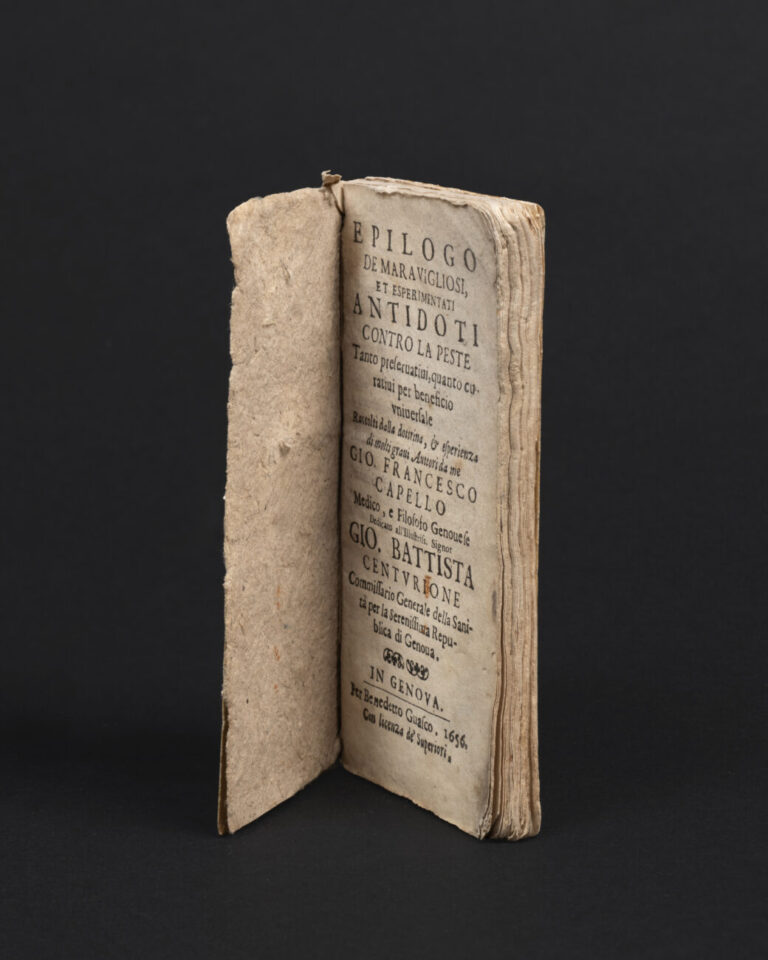 EPILOGO
DE MARAVIGLIOSI,
ET ESPERIMENTATI
ANTIDOTI
CONTRO LA PESTE
Tanto preſeruatiui, quanto cu-
ratiui per beneficio
vniuerſale
Raccolti dalla dottrina, & eſperienza
di molti graui Auttori da me
GIO. FRANCESCO
CAPELLO
Medico, e Filoſofo Genoueſe
Dedicato all'Illuſtriſs. Signor
GIO. BATTISTA
CENTVRIONE
Commiſſario Generale della Sani-
tà per la Sereniſſima Repu-
blica di Genoua.
IN GENOVA.
Per Benedetto Guaſco. 1656.
Con licenza de' Superiori.